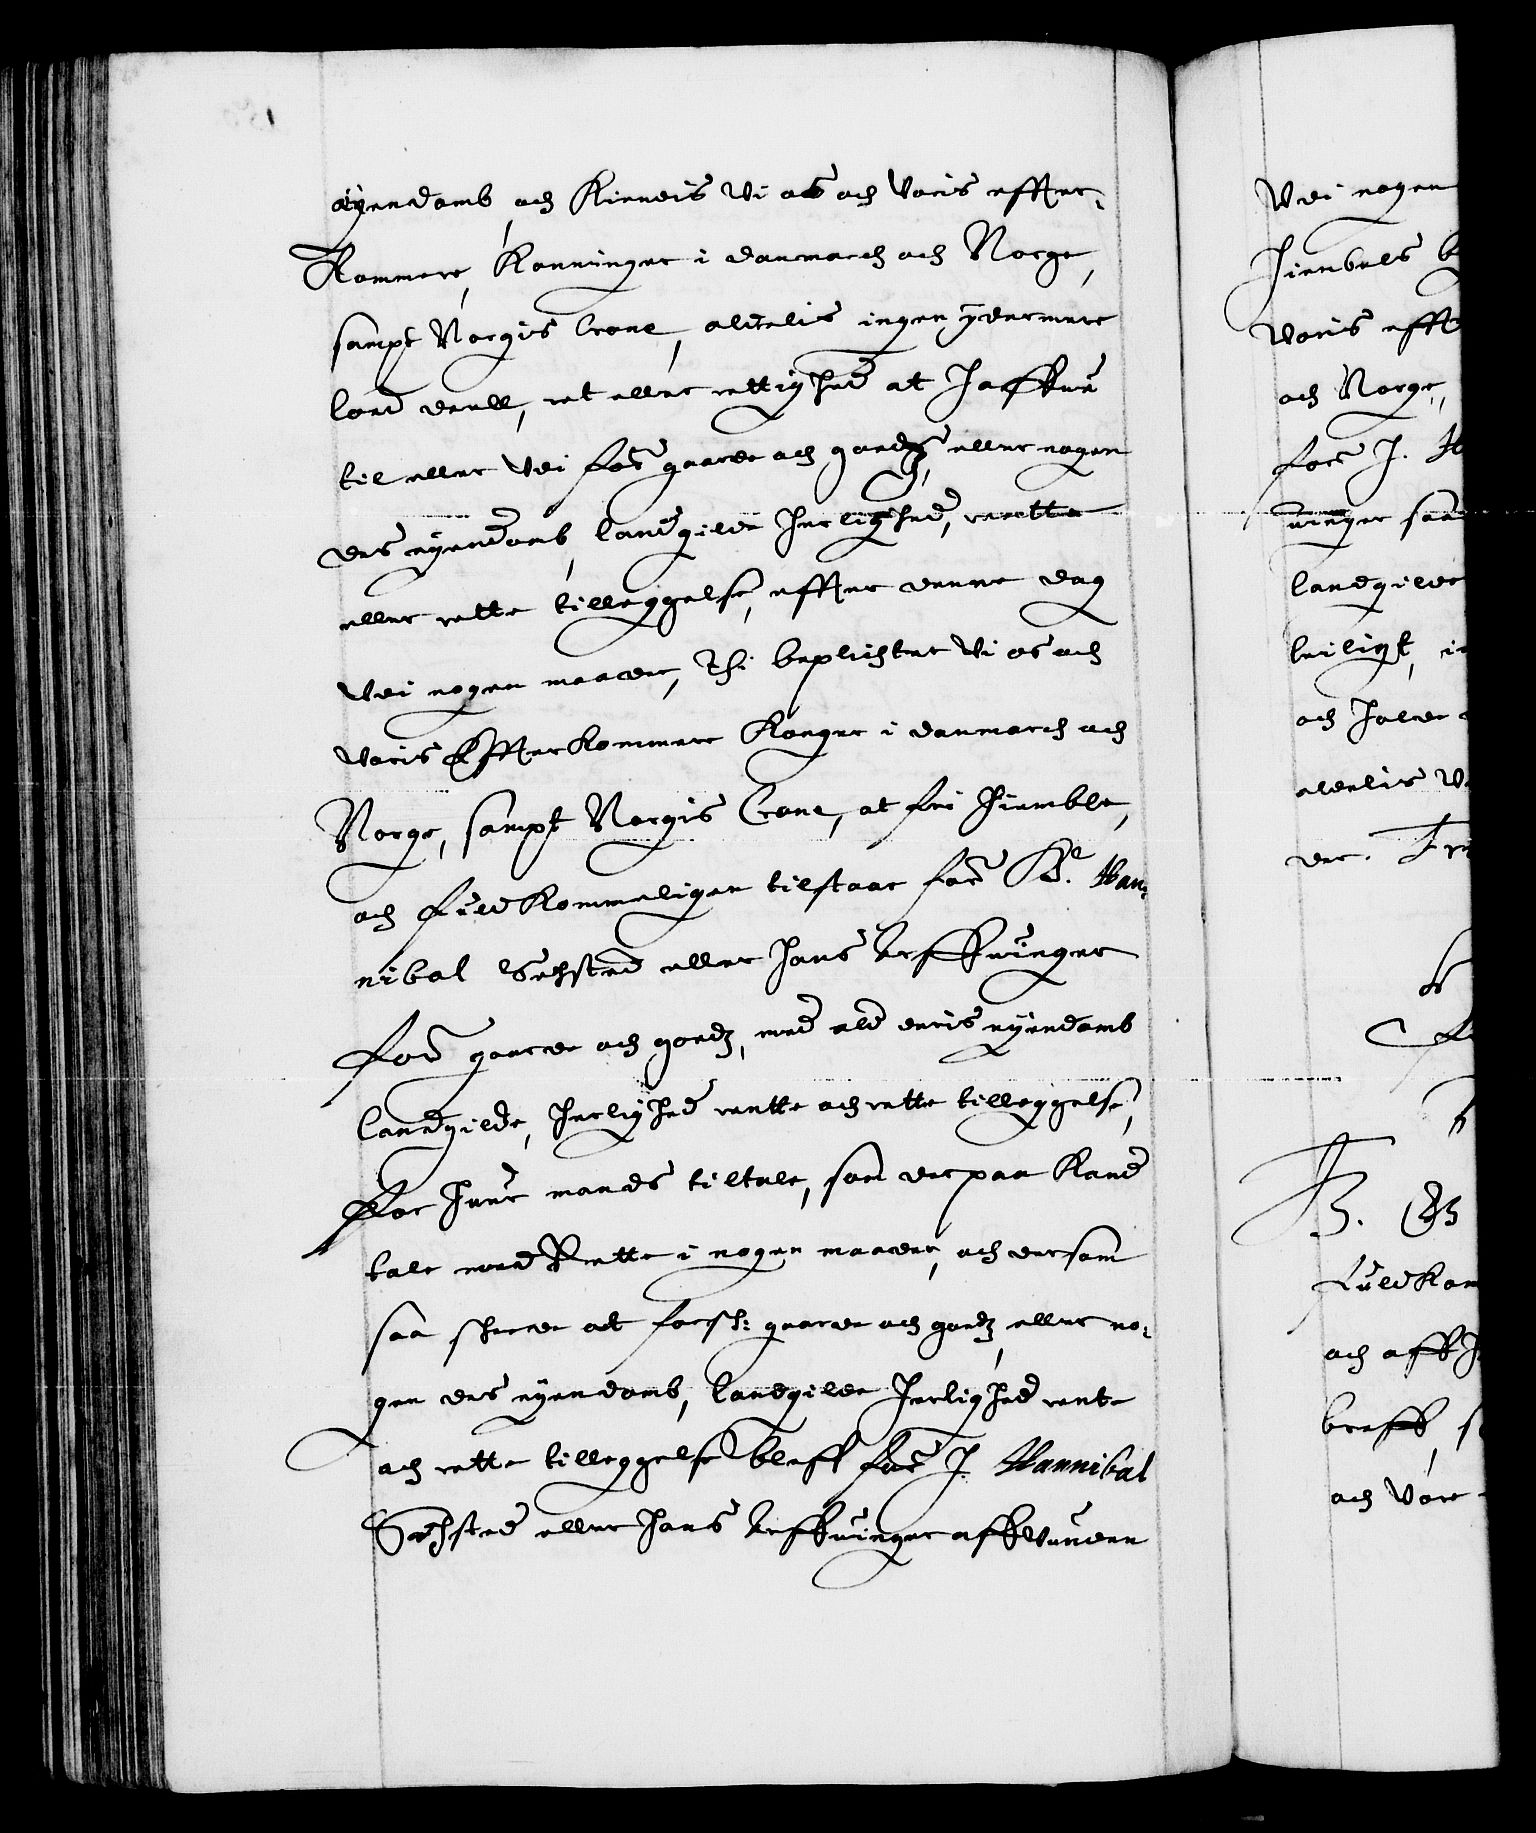 eÿendomb, och Kiendis Wi os och Woris effter-
Kommere, Konninger i danmarch och Norge,
sampt Norgis Crone, aldelis ingen ÿdermere
lod deell, ret eller rettighed at haffue
til eller Udi for: gaarde och godtz, eller nogen
des eÿendomb, landgilde herlighed, rente
eller rette tilleggelse, effter denne dag
Udi nogen maader, Thi beplichter Wi os och
Woris Effterkommere Konger i danmarch och
Norge, sampt Norgis Crone, at fri hiemble,
och fuldkommeligen tilstaae for: Hr. Han-
nibal Sehsted eller hans Arffuinger
for: gaarde och godtz, med ald deris eÿendomb
landgilde, herlighed rente och rette tilleggelse,
for huer mands tiltale, som der paa Kand
tale med Rette i nogen maader, och dersom
saa scheede at forsch: gaarde och godtz, eller no-
gen des eÿendomb, landgilde herlighed rente
och rette tilleggelse bleff for: H. Hannibal
Sehsted eller hans Arffuinger affWunden
Udi nogen
hiembels
Woris efft
och Norge,
for: H. H
uinger saa
landgilde
beiligt,
och holde
aldelis W
der. Fr
fuldkom
och aff
breff, s
och Vore